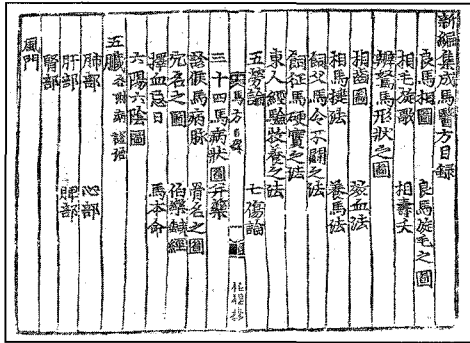 新編集成馬醫方目録
良馬相圖 良馬旋毛之圖
相毛旋歌 相壽夭
辨駑馬形狀之圖
相齒圖 放血法
相馬捷法 養馬法
飼父馬令不鬪之法
飼征馬硬實之法
東人經驗牧養之法
五勞論 七傷論
馬方目録
三十四馬病狀圖并藥
證候馬病脉 骨名之圖
穴名之圖 伯樂鍼經
擇血忌日 馬本命
六陽六陰圖
五臟
肺部 心部
肝部 脾部
腎部
風門